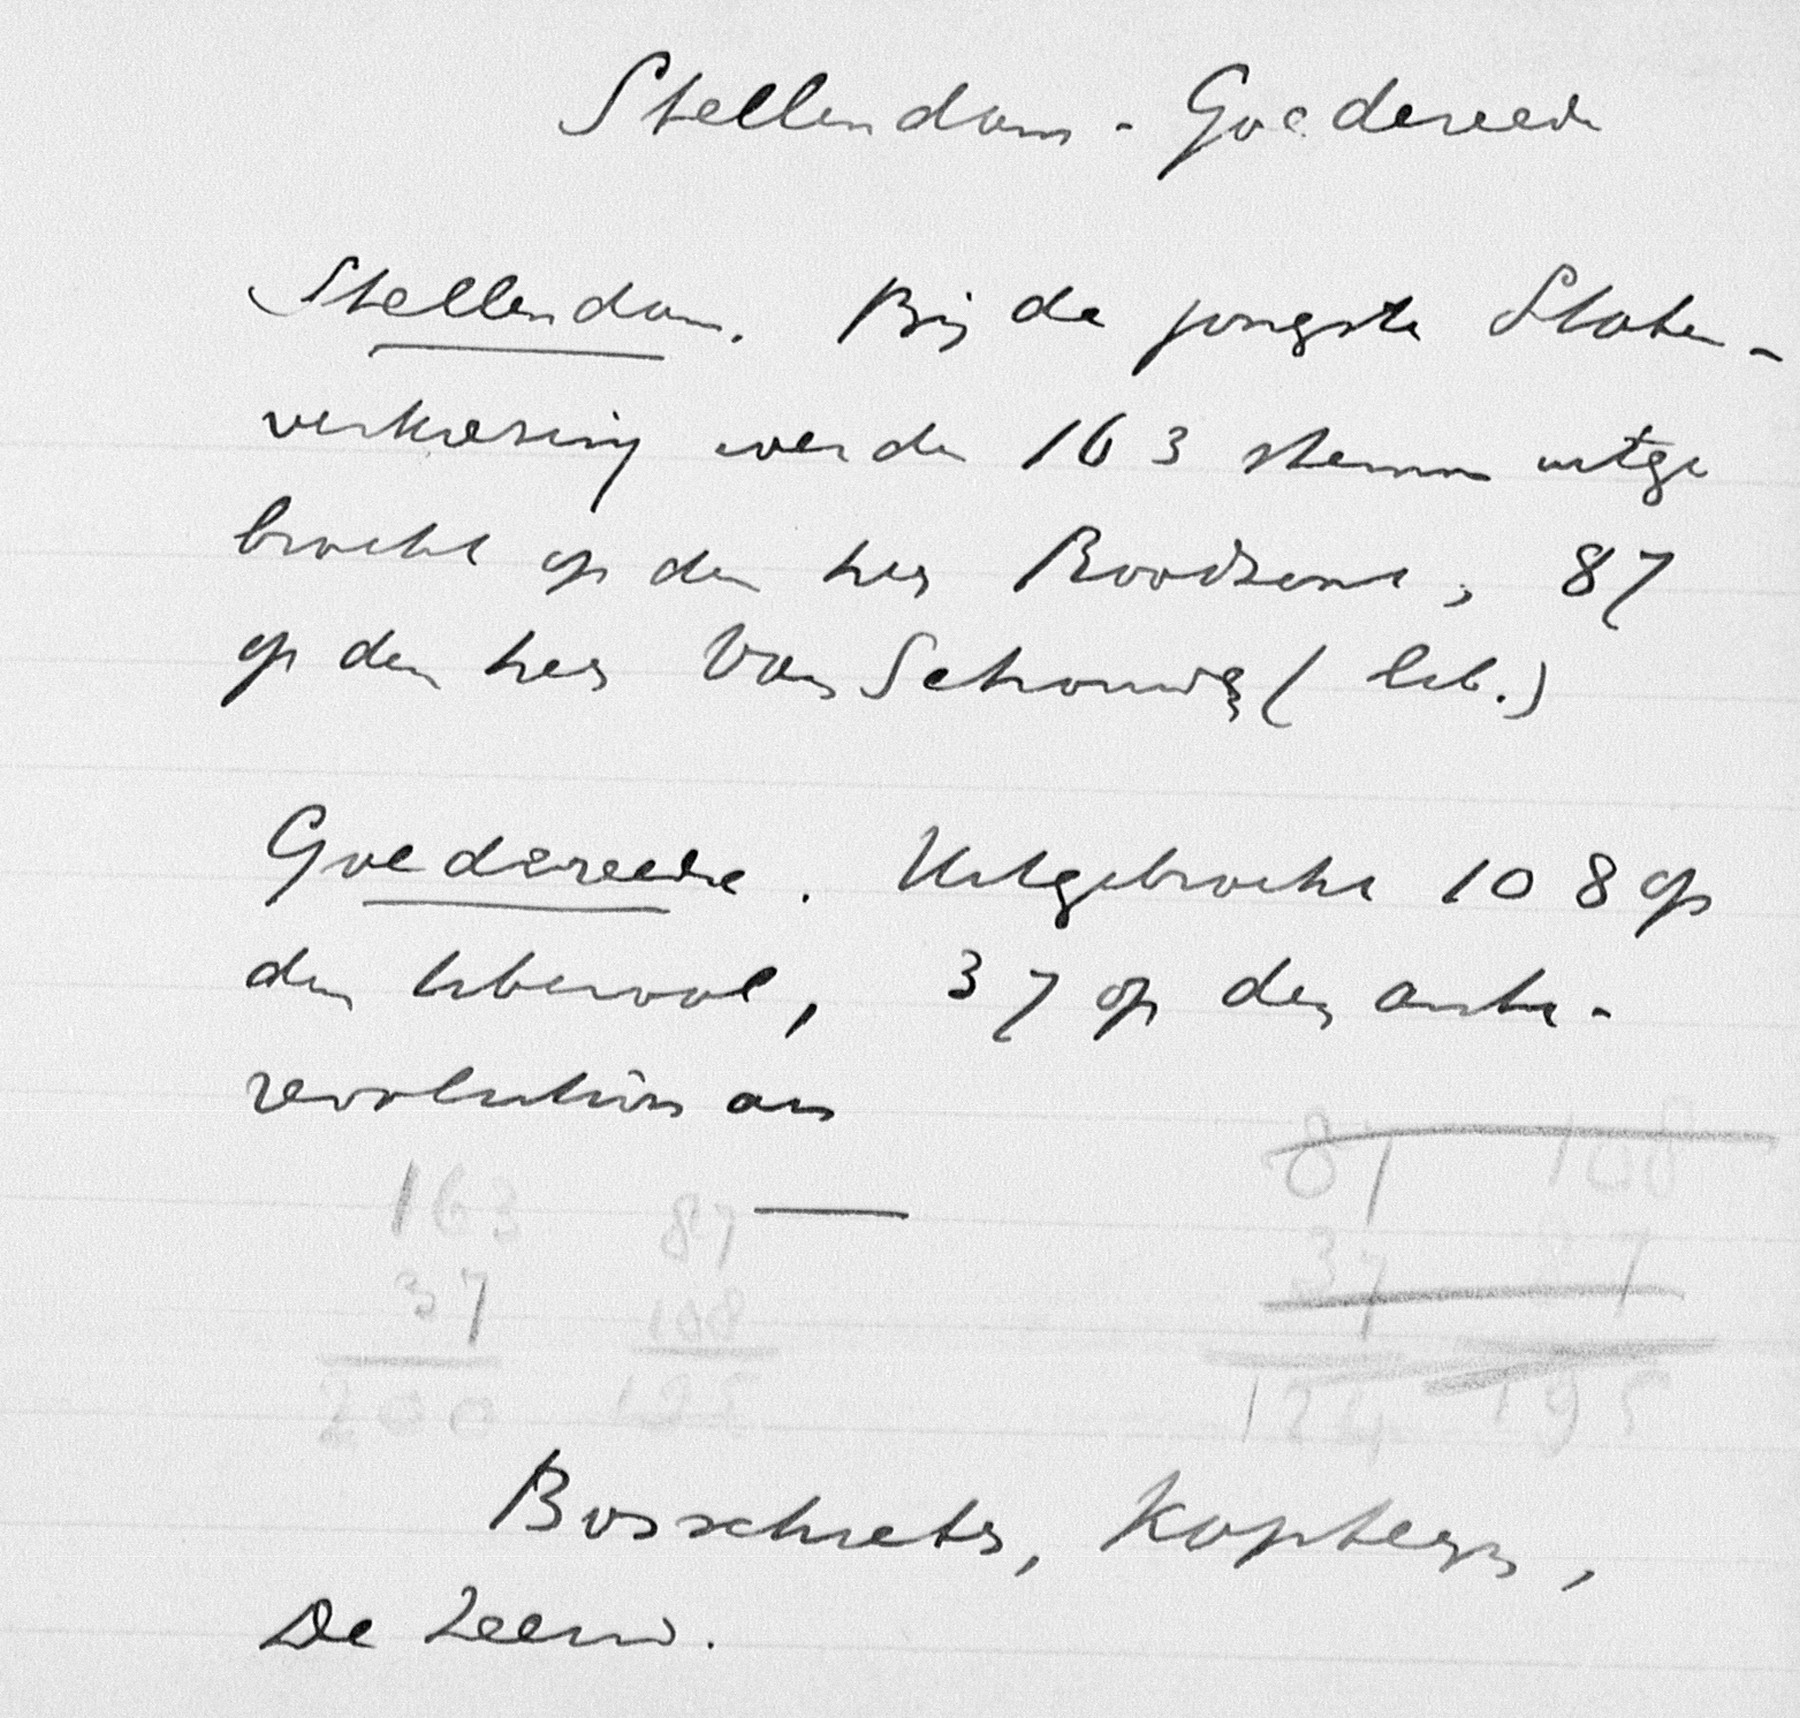 Stellendam - Goedereede
Stellendam. Bij de jongste Staten-
verkiezing werden 163 stemmen uitge
bracht op den heer Roodzant, 87
op den heer Van Schouwen (lib.)
Goedereede. Uitgebracht 108 op
den liberaal, 37 op den anti-
revolutionair
87 108
163 87
37 87
37 108
124 195
200 195
Bosschieter, Kopteyn,
De Zeeuw.